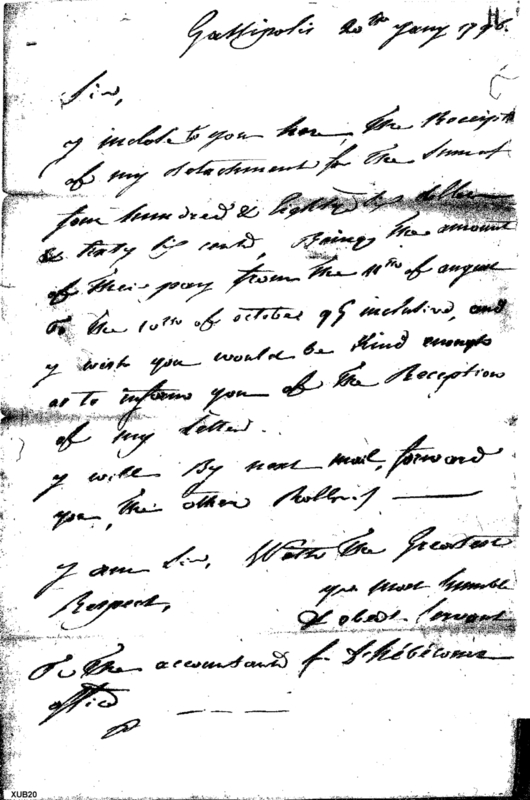 Gallipolis 20th Jany 1796.
Sir,
y inclose to you here, The Receipt
of my detachment for The Sum of
four hundred & Eighty six dollars
& thirty six cents, Being The amount
of Their pay from The 11th of august
To The 10th of october 95 inclusive, and
y wish you would be Kind enough
as to inform you of The Reception
of my Letter.
y will By next mail, forward
you, The other Rolls
y am Sir, With The Greatest
Respect,
your most humble
& obedt. Servant
To The accountant
office
XUB20